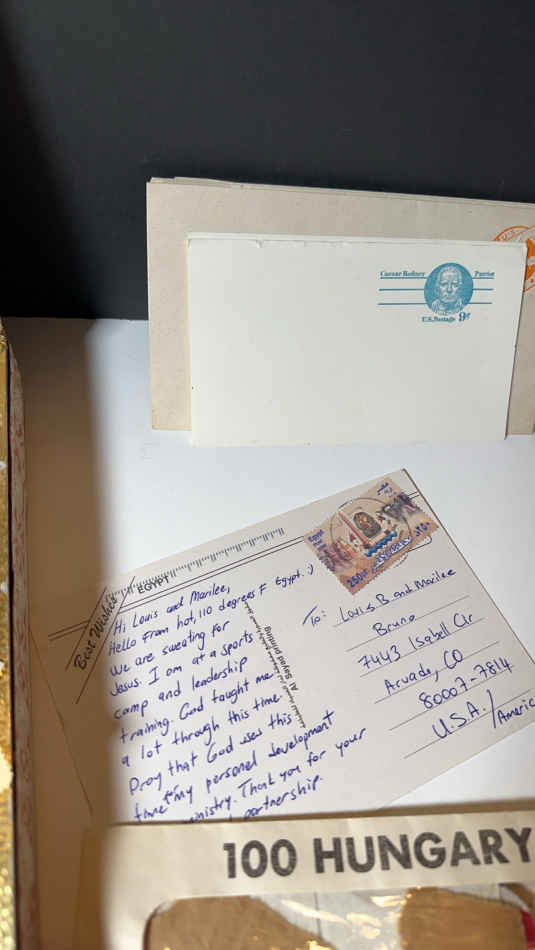 U.S.
Caesar Rodney Patriot
U.S. Postage 9¢
Best Wishes
EGYPT
Egypt
250
Hi Louis and Marilee,
Hello from hot, 110 degrees F Egypt. :)
We are sweating for
Jesus. I am at a sports
camp and leadership
training. God taught me
a lot through this time.
Pray that God uses this
time for my personal development
ministry. Thank you for your
partnership.
Al Sayad printing
To: Louis B. and Marilee
Bruno
7443 Isabell Cir
Arvada, CO
80007-7814
U.S.A. / Americ
100 HUNGARY